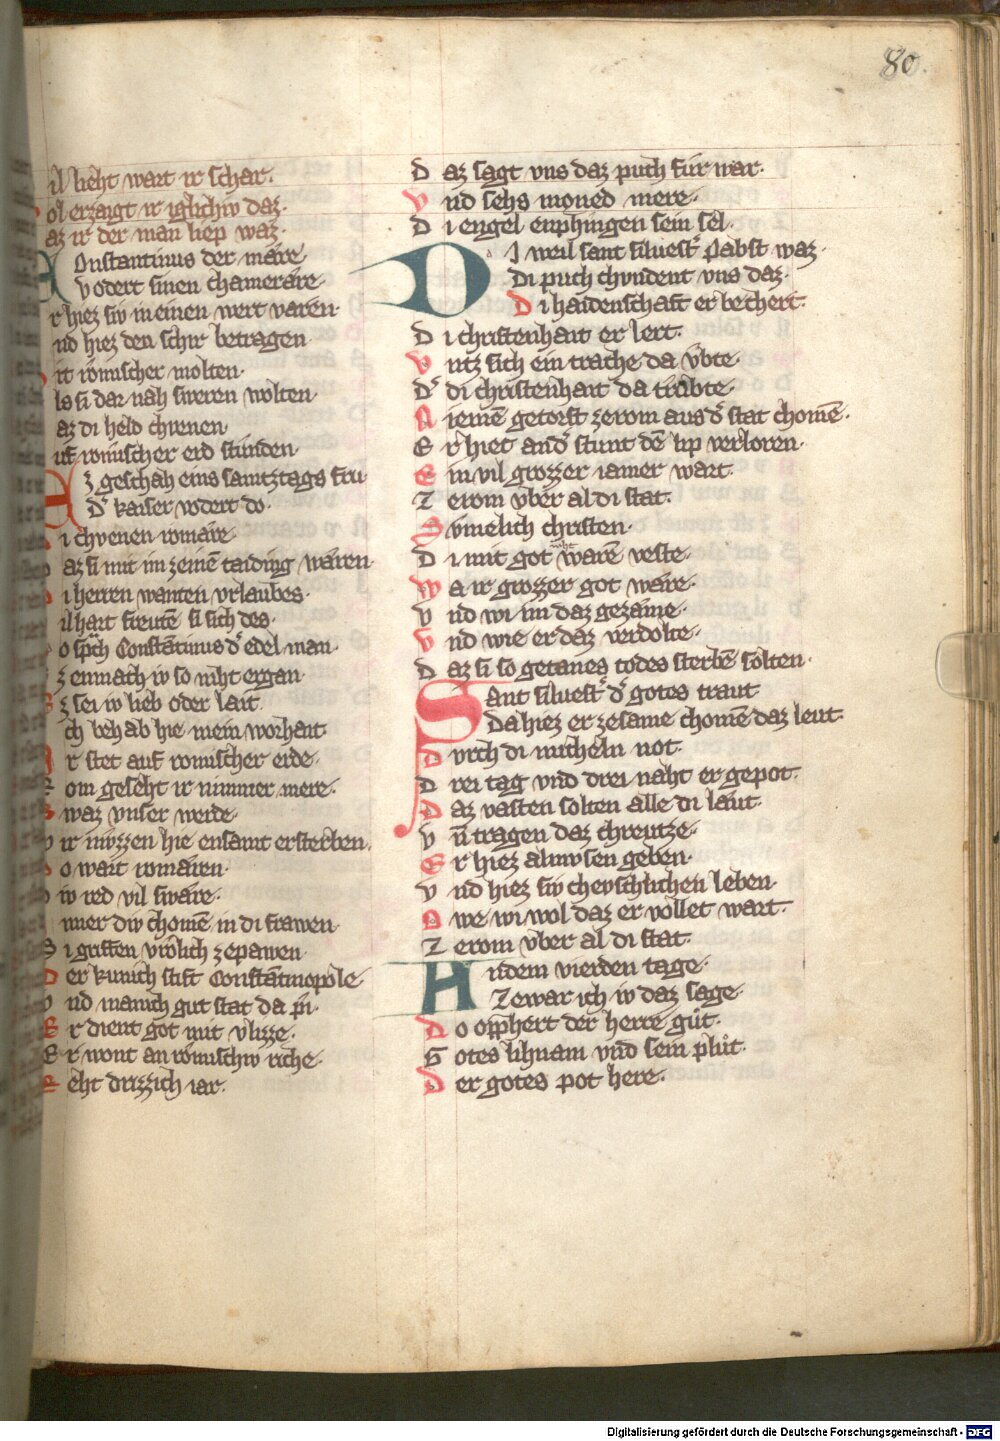 80.
il lieht wart ir schar.
ol erzaigt ir iglichiv daz.
az ir der man liep waz.
Onstantinus der mære
vodert sinen chamerære
r hiez siv in einen wert varen
nd hiez den schir betragen
it romischer molten
le si dar nah sweren wolten
az di held chvenen
uf romischer erd stunden
z geschah eins samtztags fru
D' kaiser vodert do.
i chvenen romære
az si mit im zeinē taiding wæren
i herren wanten vrlaubes.
il hart frevtē si sich des.
o sp̄ch Constātinus d' edel man.
z enmach iv so niht ergan.
z sei iv lieb oder lait.
ch behab hie mein worhait
r stet auf romischer erde.
om geseht ir nimmer mere.
waz vnser werde.
ir mvzzen hie ensamt ersterben.
o wart romæren.
iv red vil swære.
mer div chomē in di frawen
i griffen vrolich zepawen.
Der kunich stift Constātinopole
vnd manich gut stat da pi.
Er dient got mit vlizze.
Er wont an romischiv riche.
Reht drizzich iar.
Daz sagt vns daz puch fur war.
Vnd sehs moned mere.
Di engel enphingen sein sel.
DI weil sant siluest' Pabst waz.
Di puch chvndent vns daz.
Di haidenschaft er bechert.
Di christenhait er lert.
Vntz sich ein trache da vbte.
D' di christenhait da trubte
Niemē getorst zerom aus d' stat chomē.
Er hiet and' stunt dē lip verloren.
Ein vil grozzer iamer wart.
Zerom vber al di stat.
Svmelich christen.
Di mit got niht warē veste.
Wa ir grozzer got wære.
Vnd wi im daz gezæme.
Vnd wie er daz verdolte.
Daz si so getanes todes sterbē solten.
Sant siluest' d' gotes traut
Da hiez er zesame chomē daz leut.
Durch di micheln not.
Drei tag vnd drei naht er gepot.
Daz vasten solten alle di laut.
Vn̄ tragen daz chreutze.
Er hiez almvsen geben.
Vnd hiez siv chevschlichen leben.
Awe wi wol daz er vollet wart.
Zerom vber al di stat.
An dem vierden tage.
Zewar ich iv daz sage.
Do opphert der herre gut.
Gotes lihnam vnd sein plut.
Der gotes pot here.
Digitalisierung gefördert durch die Deutsche Forschungsgemeinschaft - DFG